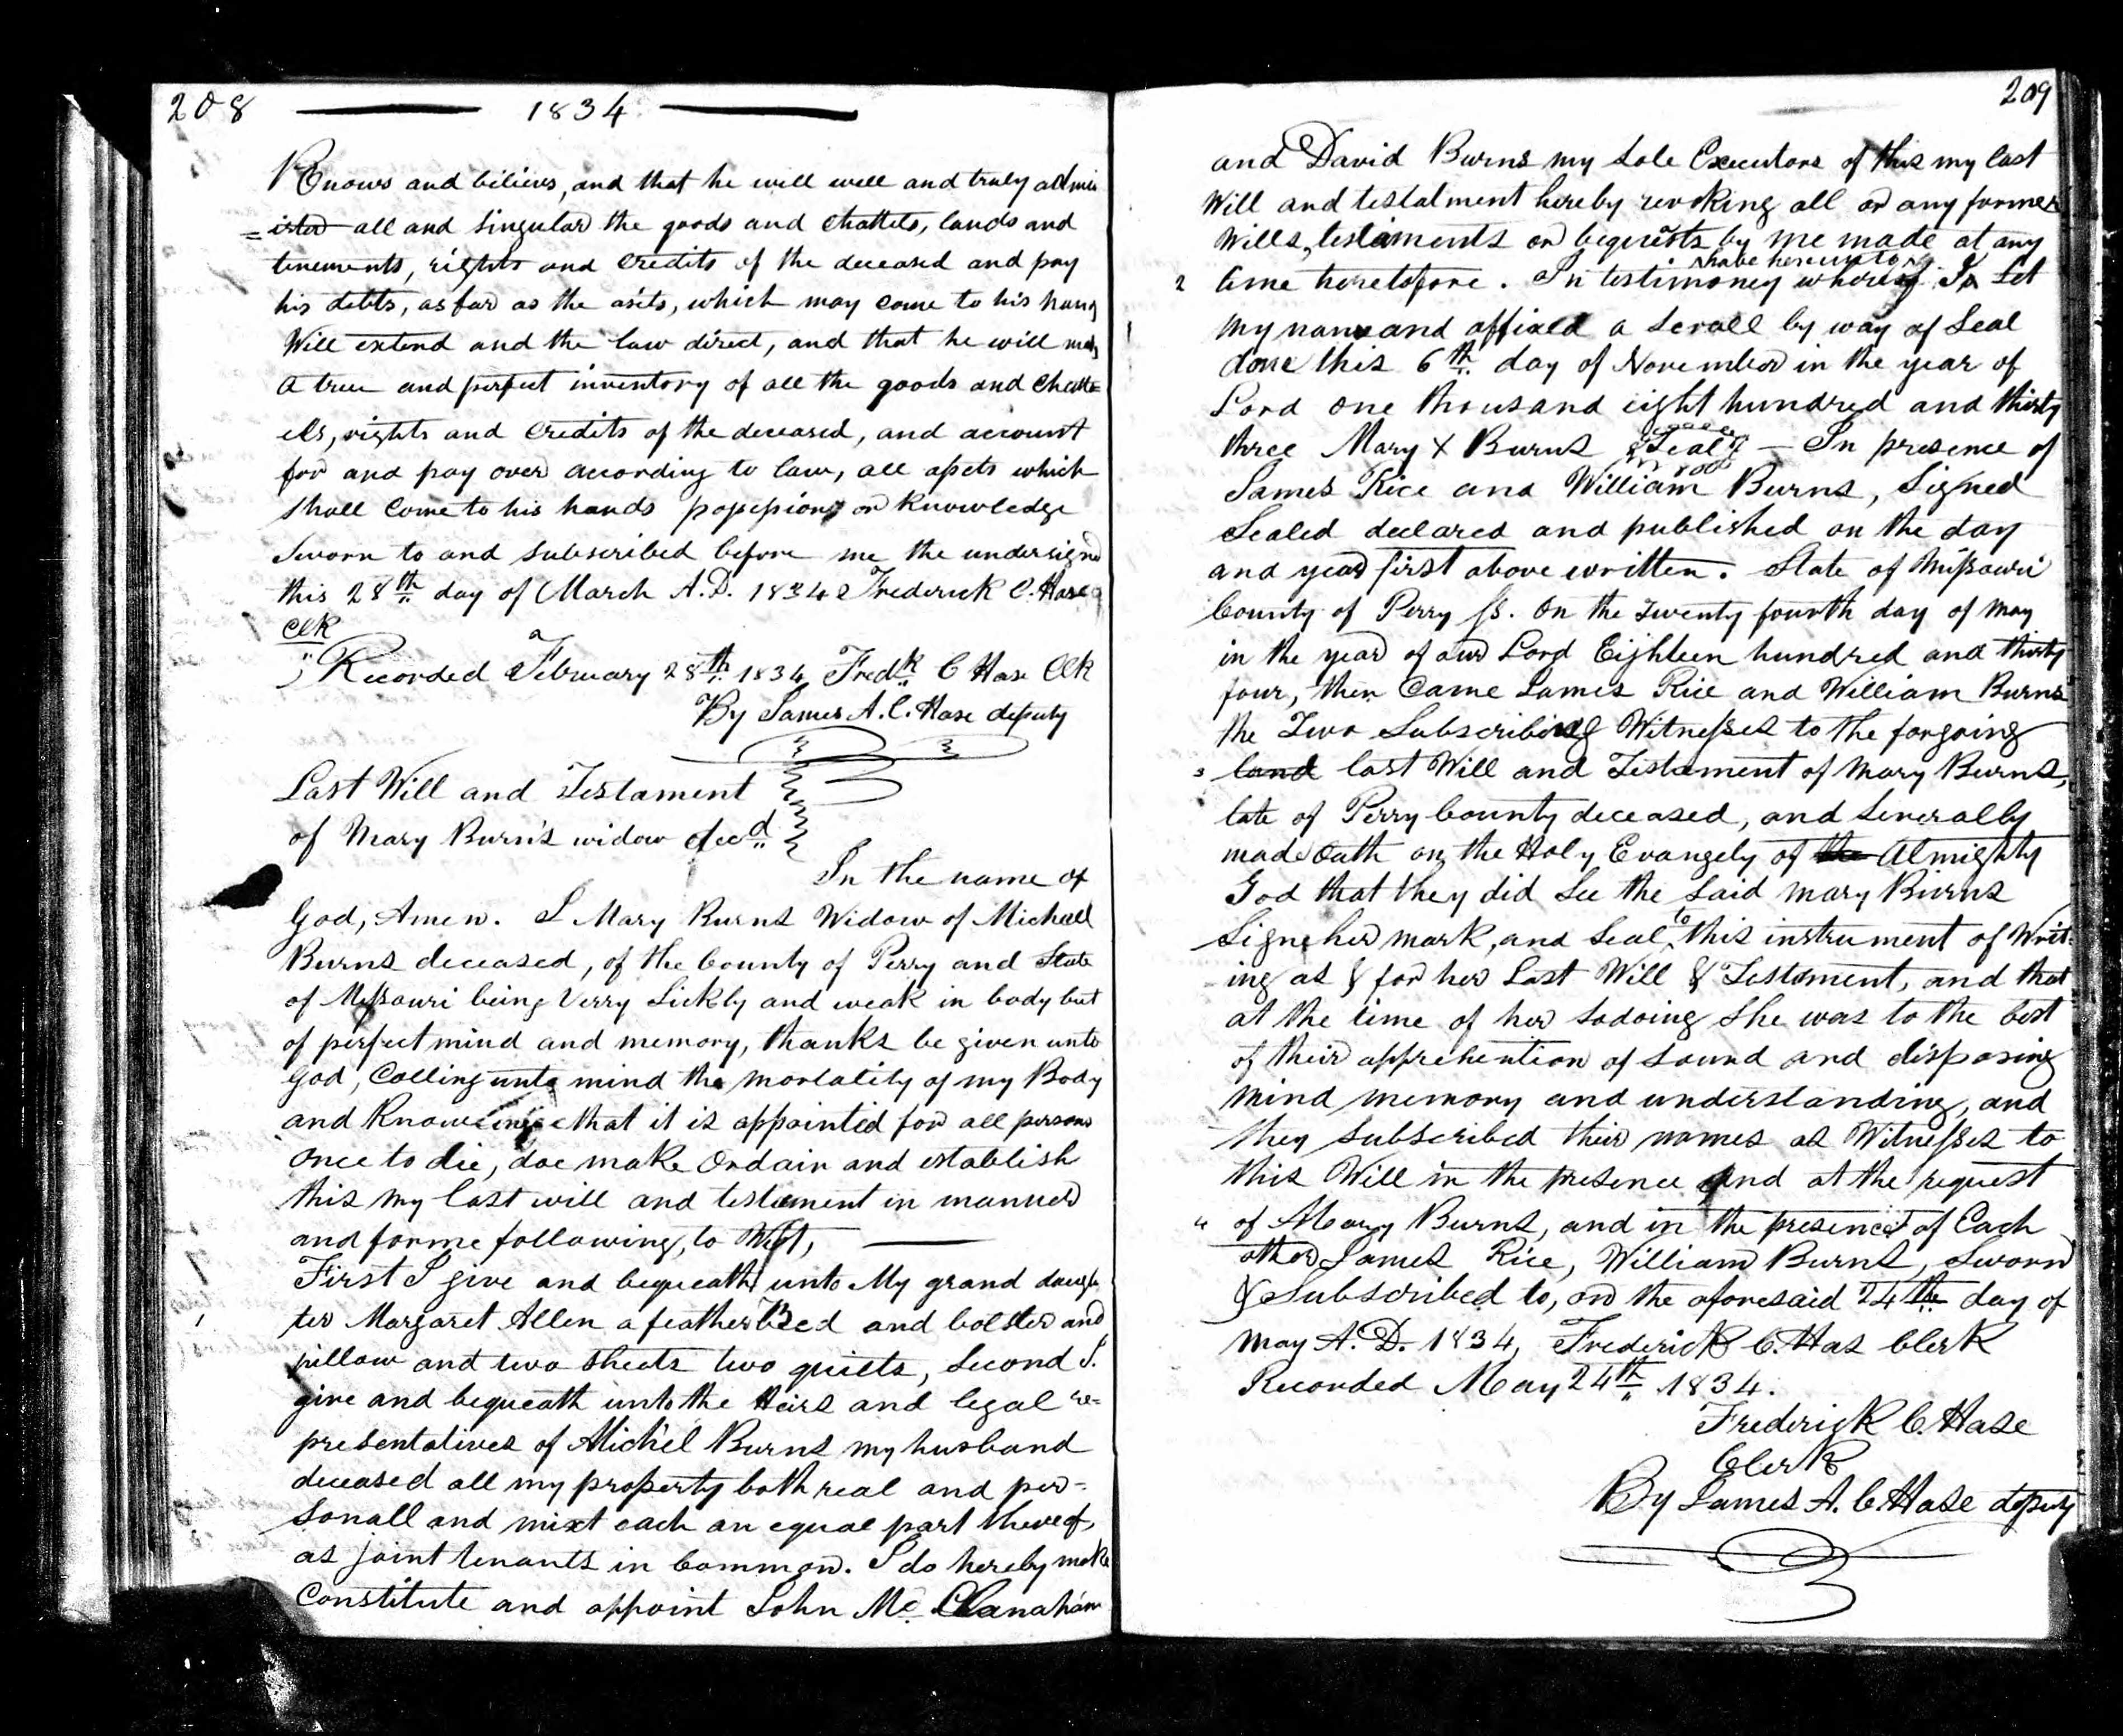 208 1834
Knows and believs, and that he will well and truly admin
=ister all and singular the goods and chattels, lands and
tenements, rights and credits of the deceased and pay
his debts, as far as the assets, which may come to his hands
Will extend and the law direct, and that he will make
a true and perfect inventory of all the goods and chatt=
els, rights and credits of the deceased, and account
for and pay over according to law, all assets which
shall come to his hands possession or knowledge
Sworn to and subscribed before me the undersigned
this 28th day of March A.D. 1834 Frederick C. Hase
Clk
Recorded February 28th 1834 Fredk C Hase Clk
By James A. C. Hase deputy
Last Will and Testament
of Mary Burn's widow decd
In the name of
God, Amen. I Mary Burns Widow of Michael
Burns deceased, of the County of Perry and State
of Missouri being Verry Sickly and weak in body but
of perfect mind and memory, thanks be given unto
God, Calling unto mind the mortality of my Body
and Knowing that it is appointed for all persons
once to die, doe make Ordain and establish
this my last will and testement in manner
and forme following, to Wit,
First I give and bequeath unto My grand daugh
ter Margaret Allen a feather Bed and bolster and
pillow and two sheets two quilts, Second I
give and bequeath unto the Heirs and legal re=
presentatives of Michel Burns my husband
deceased all my property both real and per=
sonall and mixt each an equal part thereof,
as joint tenants in Common. I do hereby make
Constitute and appoint John Mc Clanaham
209
and David Burns my Sole Executors of this my last
Will and testatment hereby revoking all or any former
Wills, testaments or bequests by me made at any
2 time heretofore. In testimoney whereof I have hereunto Set
my name and affixed a Scroll by way of Seal
done this 6th day of November in the year of
Lord one thousand eight hundred and thirty
three Mary X Burns Seal — In presence of
James Rice and William Burns, Signed
Sealed declared and published on the day
and year first above written. State of Missouri
County of Perry ss. On the twenty fourth day of May
in the year of our Lord Eighteen hundred and thirty
four, then Came James Rice and William Burns
the Two Subscribing Witnesses to the forgoing
3 land last Will and Testament of Mary Burns,
late of Perry County deceased, and Severally
made Oath on the Holy Evangely of the Almighty
God that they did See the Said Mary Burns
Signe her mark, and Seal to this instrument of Writ=
ing as & for her Last Will & Testament, and that
at the time of her Sodoing She was to the best
of their apprehention of Sound and disposing
mind memory and understanding, and
they Subscribed their names as Witnesses to
this Will in the presence and at the request
4 of Mary Burns, and in the presence of Each
other James Rice, William Burns, Sworn
& Subscribed to, on the aforesaid 24th day of
May A.D. 1834, Frederick C. Has Clerk
Recorded May 24th 1834.
Frederick C. Hase
Clerk
By James A. C. Hase deputy